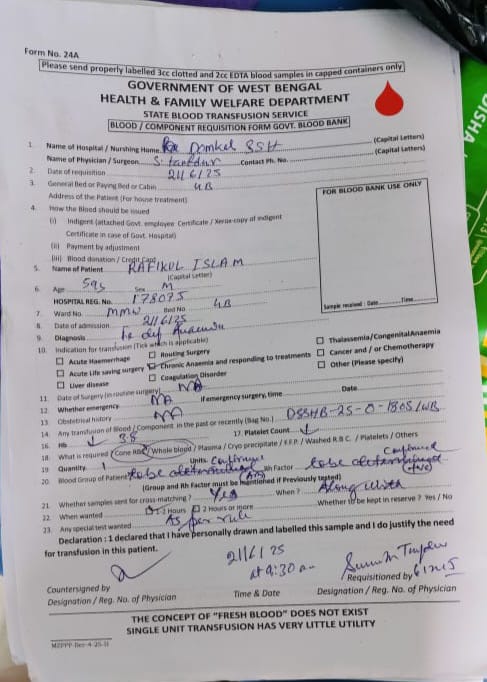 Form No. 24A
Please send properly labelled 3cc clotted and 2cc EDTA blood samples in capped containers only
GOVERNMENT OF WEST BENGAL
HEALTH & FAMILY WELFARE DEPARTMENT
STATE BLOOD TRANSFUSION SERVICE
BLOOD / COMPONENT REQUISITION FORM GOVT. BLOOD BANK
1. Name of Hospital / Nurshing Home Domkal SSH (Capital Letters)
Name of Physician / Surgeon S. Contact Ph. No. (Capital Letters)
2. Date of requisition 2/6/25
3. General Bed or Paying Bed or Cabin GB
Address of the Patient (For house treatment)
FOR BLOOD BANK USE ONLY
4. How the Blood should be issued
(i) Indigent (attached Govt. employee Certificate / Xerox-copy of indigent
Certificate in case of Govt. Hospital)
(ii) Payment by adjustment
(iii) Blood donation / Credit Card
5. Name of Patient RAFIKUL ISLAM
(Capital Letter)
6. Age 59s Sex M
HOSPITAL REG. NO. 178095
7. Ward No. MMW Bed No. GB
Sample received : Date Time
8. Date of admission 2/6/25
9. Diagnosis Fe def Anaemia
10. Indication for transfusion (Tick which is applicable)
Acute Haemorrhage Routing Surgery Thalassemia/CongenitalAnaemia
Acute Life saving surgery Chronic Anaemia and responding to treatments Cancer and / or Chemotherapy
Liver disease Coagulation Disorder Other (Please specify)
11. Date of Surgery (in routine surgery) NA
12. Whether emergency NA if emergency surgery, time Date
13. Obstetrical history NA
14. Any transfusion of Blood / Component in the past or recently (Bag No.) DSSHB-25-0-1805/WB
16. Hb 3.8 17. Platelet Count
18. What is required (Cone RBC / Whole blood / Plasma / Cryo precipitate / F.F.P. / Washed R.B.C. / Platelets / Others
19. Quantity 1 Units
20. Blood Group of Patient to be determined Rh Factor to be determined
(Group and Rh Factor must be mentioned if Previously tested) (+ve)
21. Whether samples sent for cross-matching ? Yes When ? Along with
22. When wanted 1-2 Hours 2 Hours or more Whether to be kept in reserve ? Yes / No
23. Any special test wanted As per rule
Declaration : I declared that I have personally drawn and labelled this sample and I do justify the need
for transfusion in this patient.
2/6/25
at 9:30 am
Countersigned by
Designation / Reg. No. of Physician
Time & Date
Requisitioned by
Designation / Reg. No. of Physician
THE CONCEPT OF "FRESH BLOOD" DOES NOT EXIST
SINGLE UNIT TRANSFUSION HAS VERY LITTLE UTILITY